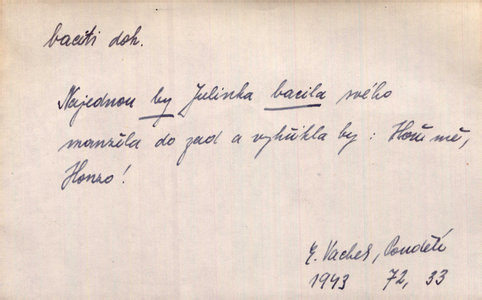 baciti dok.
Najednou by Julinka bacila svého
manžela do zad a vykřikla by: Hoň mě,
Honzo!
E. Vachek, Pondělí
1943 72, 33